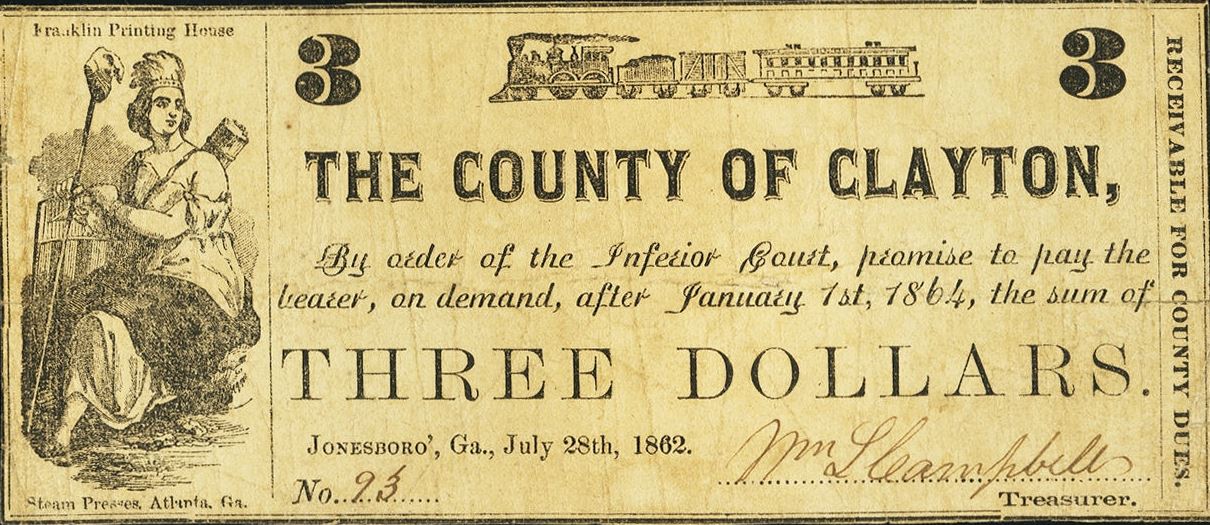 Franklin Printing House
3
3
THE COUNTY OF CLAYTON,
By order of the Inferior Court, promise to pay the
bearer, on demand, after January 1st, 1864, the sum of
THREE DOLLARS.
JONESBORO', Ga., July 28th, 1862.
No. 93
Wm L Campbell
Treasurer.
Steam Presses, Atlanta, Ga.
RECEIVABLE FOR COUNTY DUES.